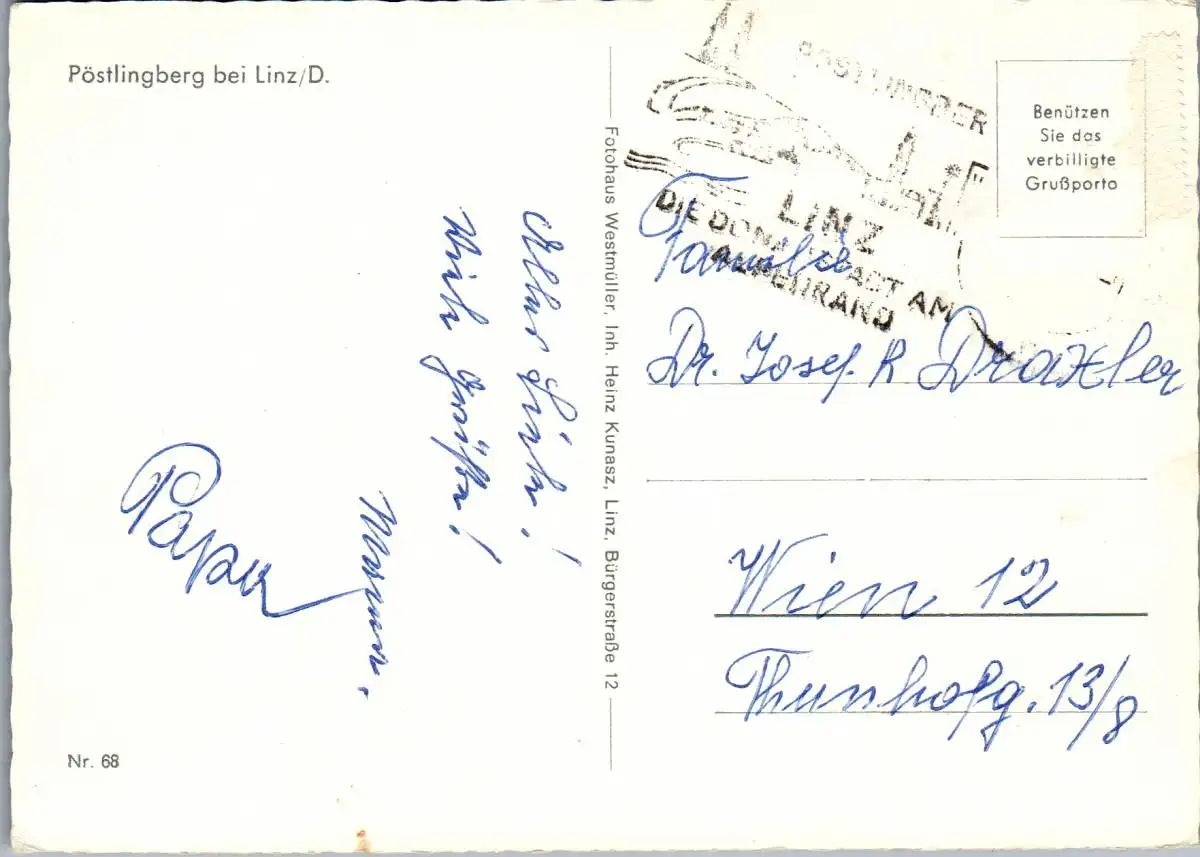 Pöstlingberg bei Linz/D.
Alles Liebe!
Viele Grüße!
Mama,
Papa
Nr. 68
Fotohaus Westmüller, Inh. Heinz Kunasz, Linz, Bürgerstraße 12
PÖSTLINGBER
LINZ
DIE DONAUSTADT AM
ALPENRAND
Benützen
Sie das
verbilligte
Grußporto
Familie
Dr. Josef R Draxler
Wien 12
Thunhofg. 13/8